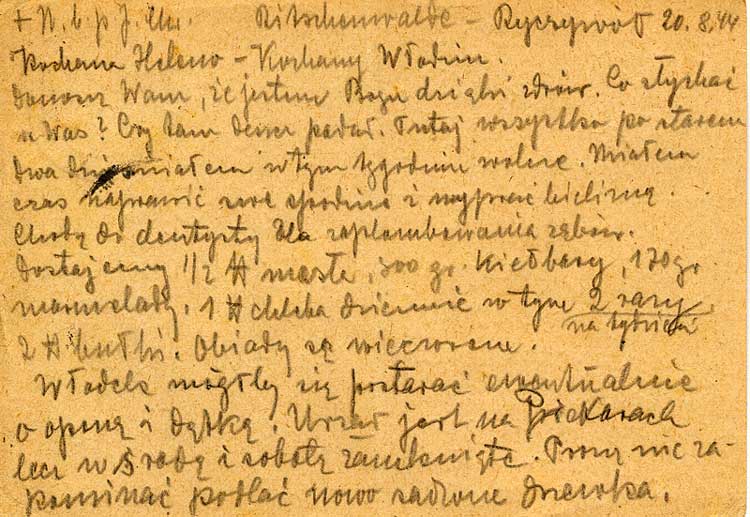 + N. b. p. J. Chr. Ritschenwalde - Ryczywół 20.8.44
Kochana Heleno - Kochany Włodziu.
Donoszę Wam, że jestem Bogu dzięki zdrów. Co słychać
u Was? Czy tam deszcz padał. Tutaj wszystko po starem
Dwa dni miałem w tym tygodniu wolne. Miałem
czas naprawić swe spodnie i wyprać bieliznę.
Chodzę do dentysty dla zaplombowania zębów.
Dostajemy 1/2 ℔ masła, 300 gr. Kiełbasy, 170 gr
marmelady. 1 ℔ chleba dziennie w tym 2 razy
na tydzień
2 ℔ bułki. Obiady są
Włodek mógłby się postarać ewentualnie
o oponę i dętkę. Urząd jest na Piekarach
lecz w środę i sobotę zamknięte. Proszę nie za-
pominać podlać nowo sadzone drzewka.